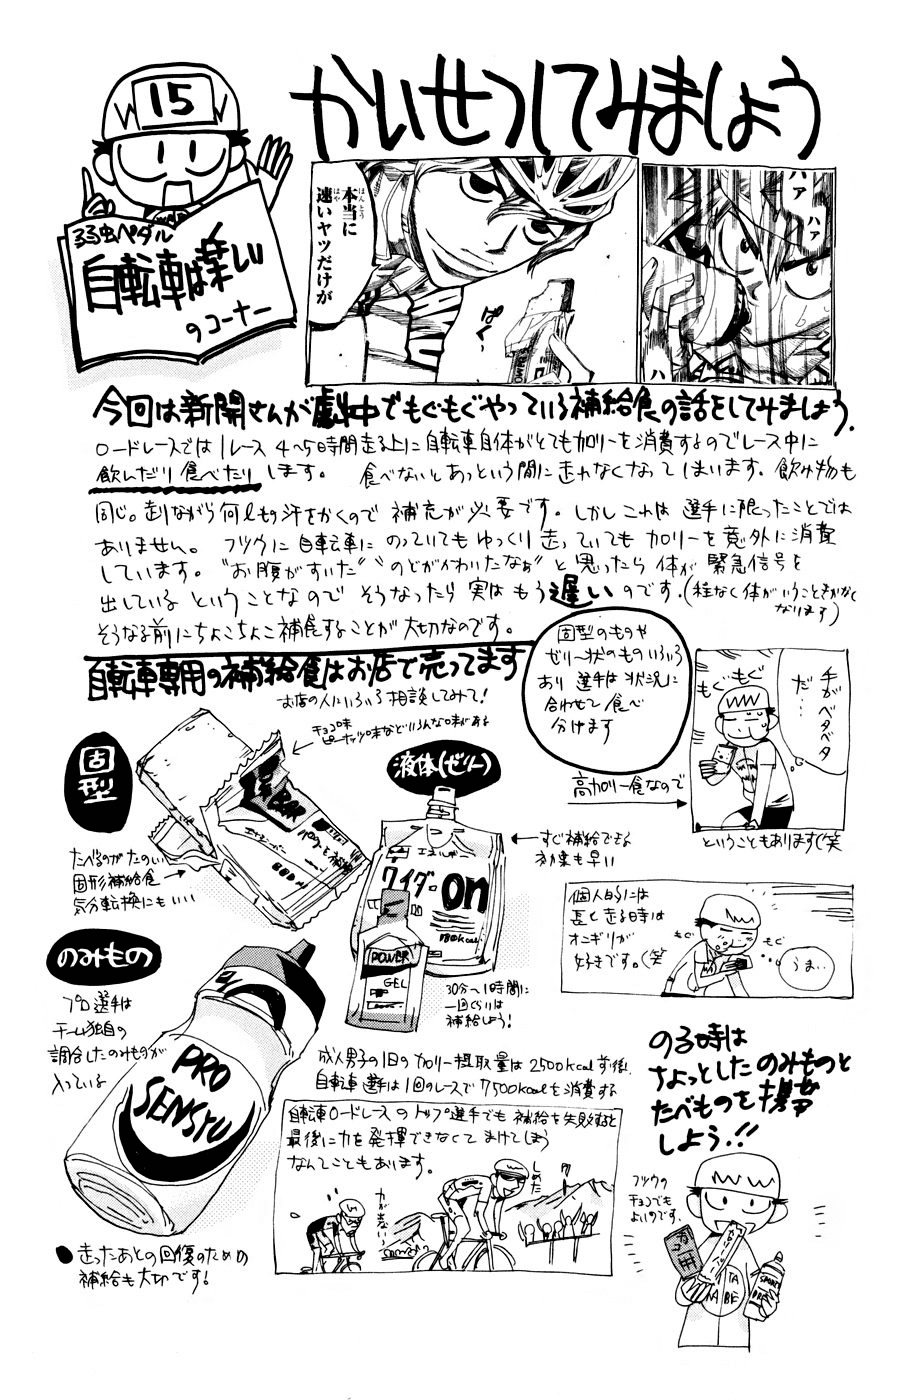 かいせつしてみましょう
15
弱虫ペダル
自転車は楽しい
のコーナー
本当に
ほんとう
速いヤツだけが
はや
ぱく
ハァ
ハァ
今回は新開さんが劇中でもぐもぐやっている補給食の話をしてみましょう.
ロードレースでは1レース 4〜5時間走る上に自転車自体がとてもカロリーを消費するのでレース中に
飲んだり食べたりします。 食べないとあっという間に走れなくなってしまいます。飲み物も
同じ。走りながら何ℓもの汗をかくので 補充が必要です。しかしこれは選手に限ったことでは
ありません。 フツウに自転車に のっていてもゆっくり走っていても カロリーを意外に消費
しています。"お腹がすいた" "のどがかわいたなぁ" と思ったら体が緊急信号を
出しているということなのでそうなったら実はもう遅いのです。(程なく体がいうことをきかなく
なります)
そうなる前にちょこちょこ補食することが大切なのです。
自転車専用の補給食はお店で売ってます
お店の人にいろいろ相談してみて!
固型のものや
ゼリー状のものいろいろ
あり 選手は状況に
合わせて食べ
分けます
高カロリー食なので
もぐもぐ
手がベタベタ
だ…
ということもあります(笑
固型
チョコ味
ピーナッツ味などいろんな味がある
たべるのがたのしい
固形補給食
気分転換にもいい
液体(ゼリー)
エネルギー
ウイダー on
180kcal
POWER
GEL
すぐ補給できる
効果も早い
30分〜1時間に
一回くらいは
補給しよう!
個人的には
長く走る時は
オニギリが
好きです。(笑
もぐ
もぐ
うま…
のみもの
プロ選手は
チーム独自の
調合したのみものが
入っている
PRO
SENSYU
成人男子の1日のカロリー摂取量は2500kcal前後.
自転車選手は1回のレースで7500kcalを消費する
自転車ロードレースのトップ選手でも補給を失敗すると
最後に力を発揮できなくてまけてしまう
なんてこともあります。
力が出ない
しめた
のる時は
ちょっとしたのみものと
たべものを携帯
しよう.!!
フツウの
チョコでも
よいのです.
WATA
NABE
●走ったあとの回復のための
補給も大切です!